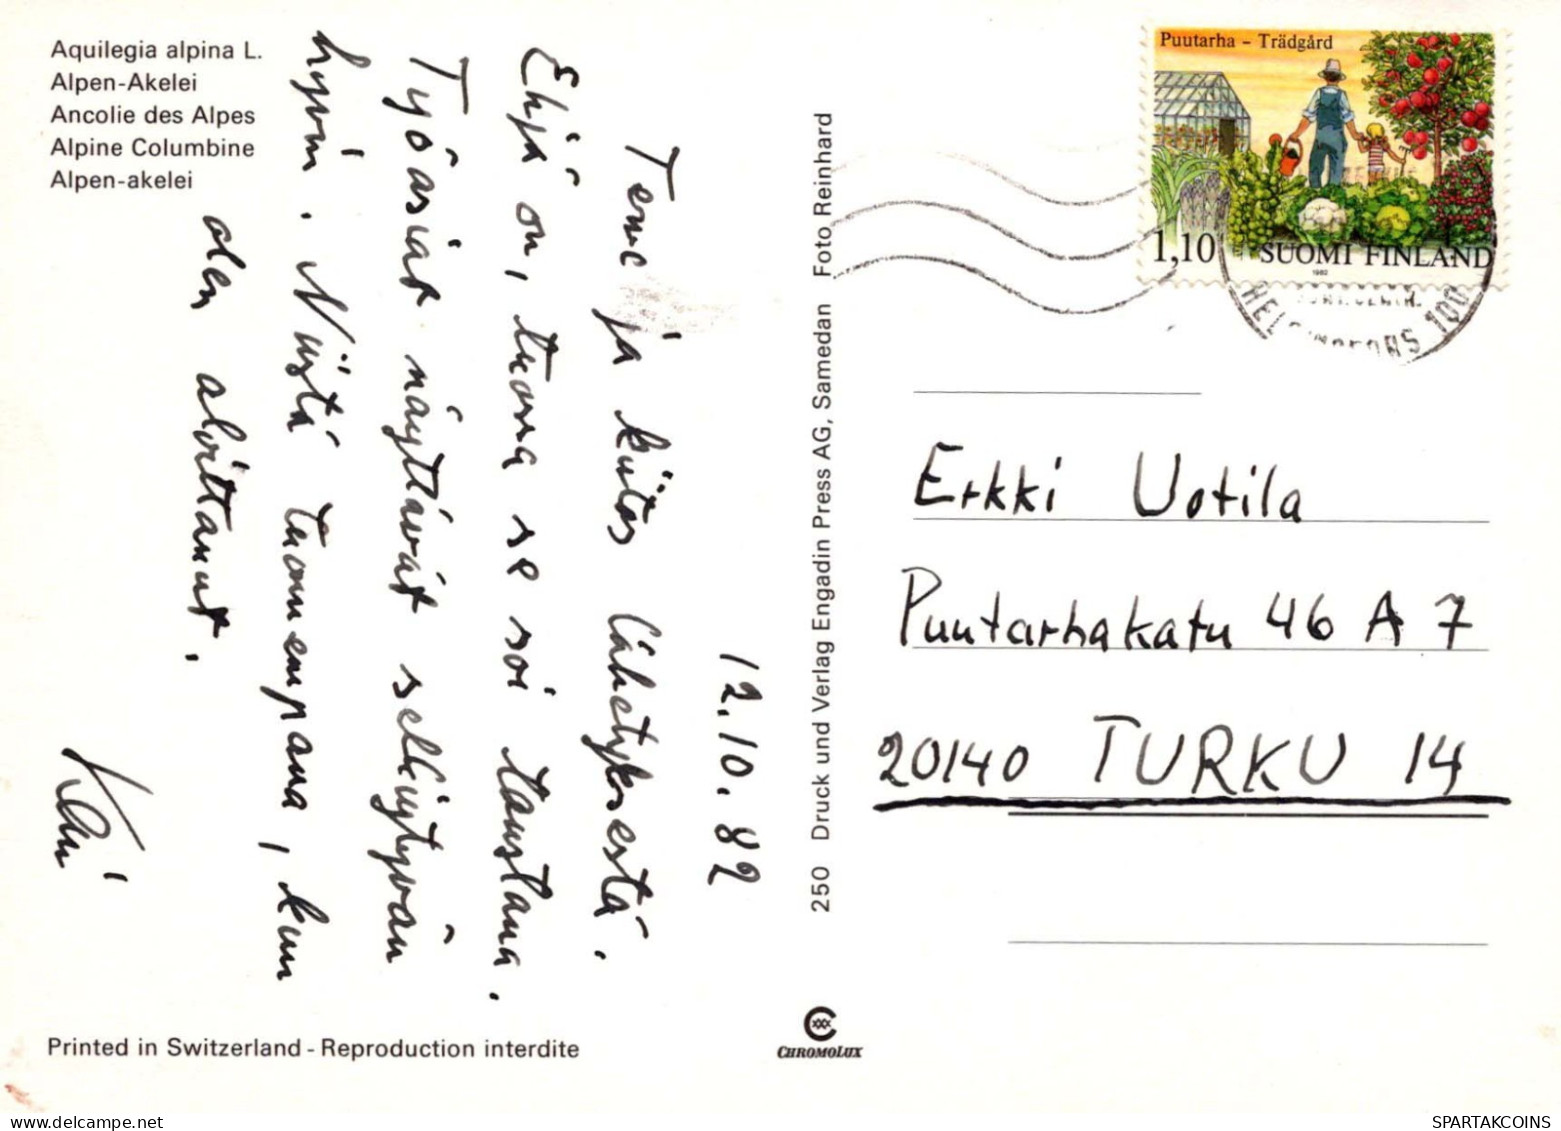 Aquilegia alpina L.
Alpen-Akelei
Ancolie des Alpes
Alpine Columbine
Alpen-akelei
12.10.82
Terve ja kiitos lähetyksestä.
Ehjä on, tuossa se soi taustana.
Työasiat näyttävät selkiytyvän
hyvin. Niistä tuonnempana, kun
olen aloittanut.
Kari
250 Druck und Verlag Engadin Press AG, Samedan Foto Reinhard
Puutarha – Trädgård
1,10 SUOMI FINLAND
1982
HELSINGFORS 100
Erkki Uotila
Puutarhakatu 46 A 7
20140 TURKU 14
Printed in Switzerland - Reproduction interdite
CHROMOLUX
SPARTAKCOINS